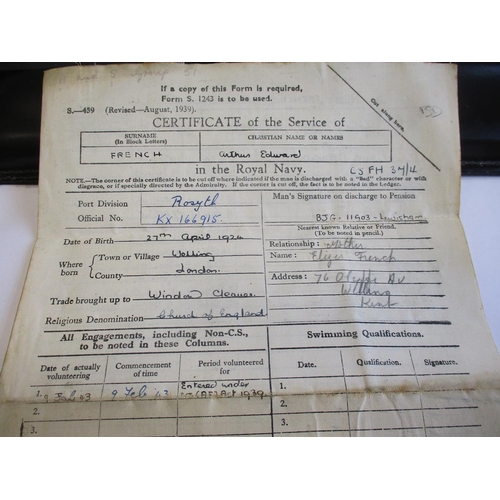 If a copy of this Form is required,
Form S. 1243 is to be used.
S.—459 (Revised—August, 1939)
Cut along here.
CERTIFICATE of the Service of
SURNAME
(In Block Letters)
CHRISTIAN NAME OR NAMES
FRENCH
Arthur Edward
in the Royal Navy.
NOTE.—The corner of this certificate is to be cut off where indicated if the man is discharged with a "Bad" character or with
disgrace, or if specially directed by the Admiralty. If the corner is cut off, the fact is to be noted in the Ledger.
Port Division Rosyth
Official No. KX 166915.
Man's Signature on discharge to Pension
BJG-11903-Lewisham
Nearest known Relative or Friend.
(To be noted in pencil.)
Date of Birth 27th April 1924
Where born
Town or Village Welling
County London.
Relationship: Mother
Name: French
Address: 76 Av
Welling
Kent
Trade brought up to Window Cleaner
Religious Denomination Church of England
All Engagements, including Non-C.S.,
to be noted in these Columns.
Swimming Qualifications.
Date of actually
volunteering
Commencement
of time
Period volunteered
for
Date.
Qualification.
Signature.
1. 9 Feb 43 9 Feb '43 Entered under
Act 1939
1.
2.
2.
3.
3.